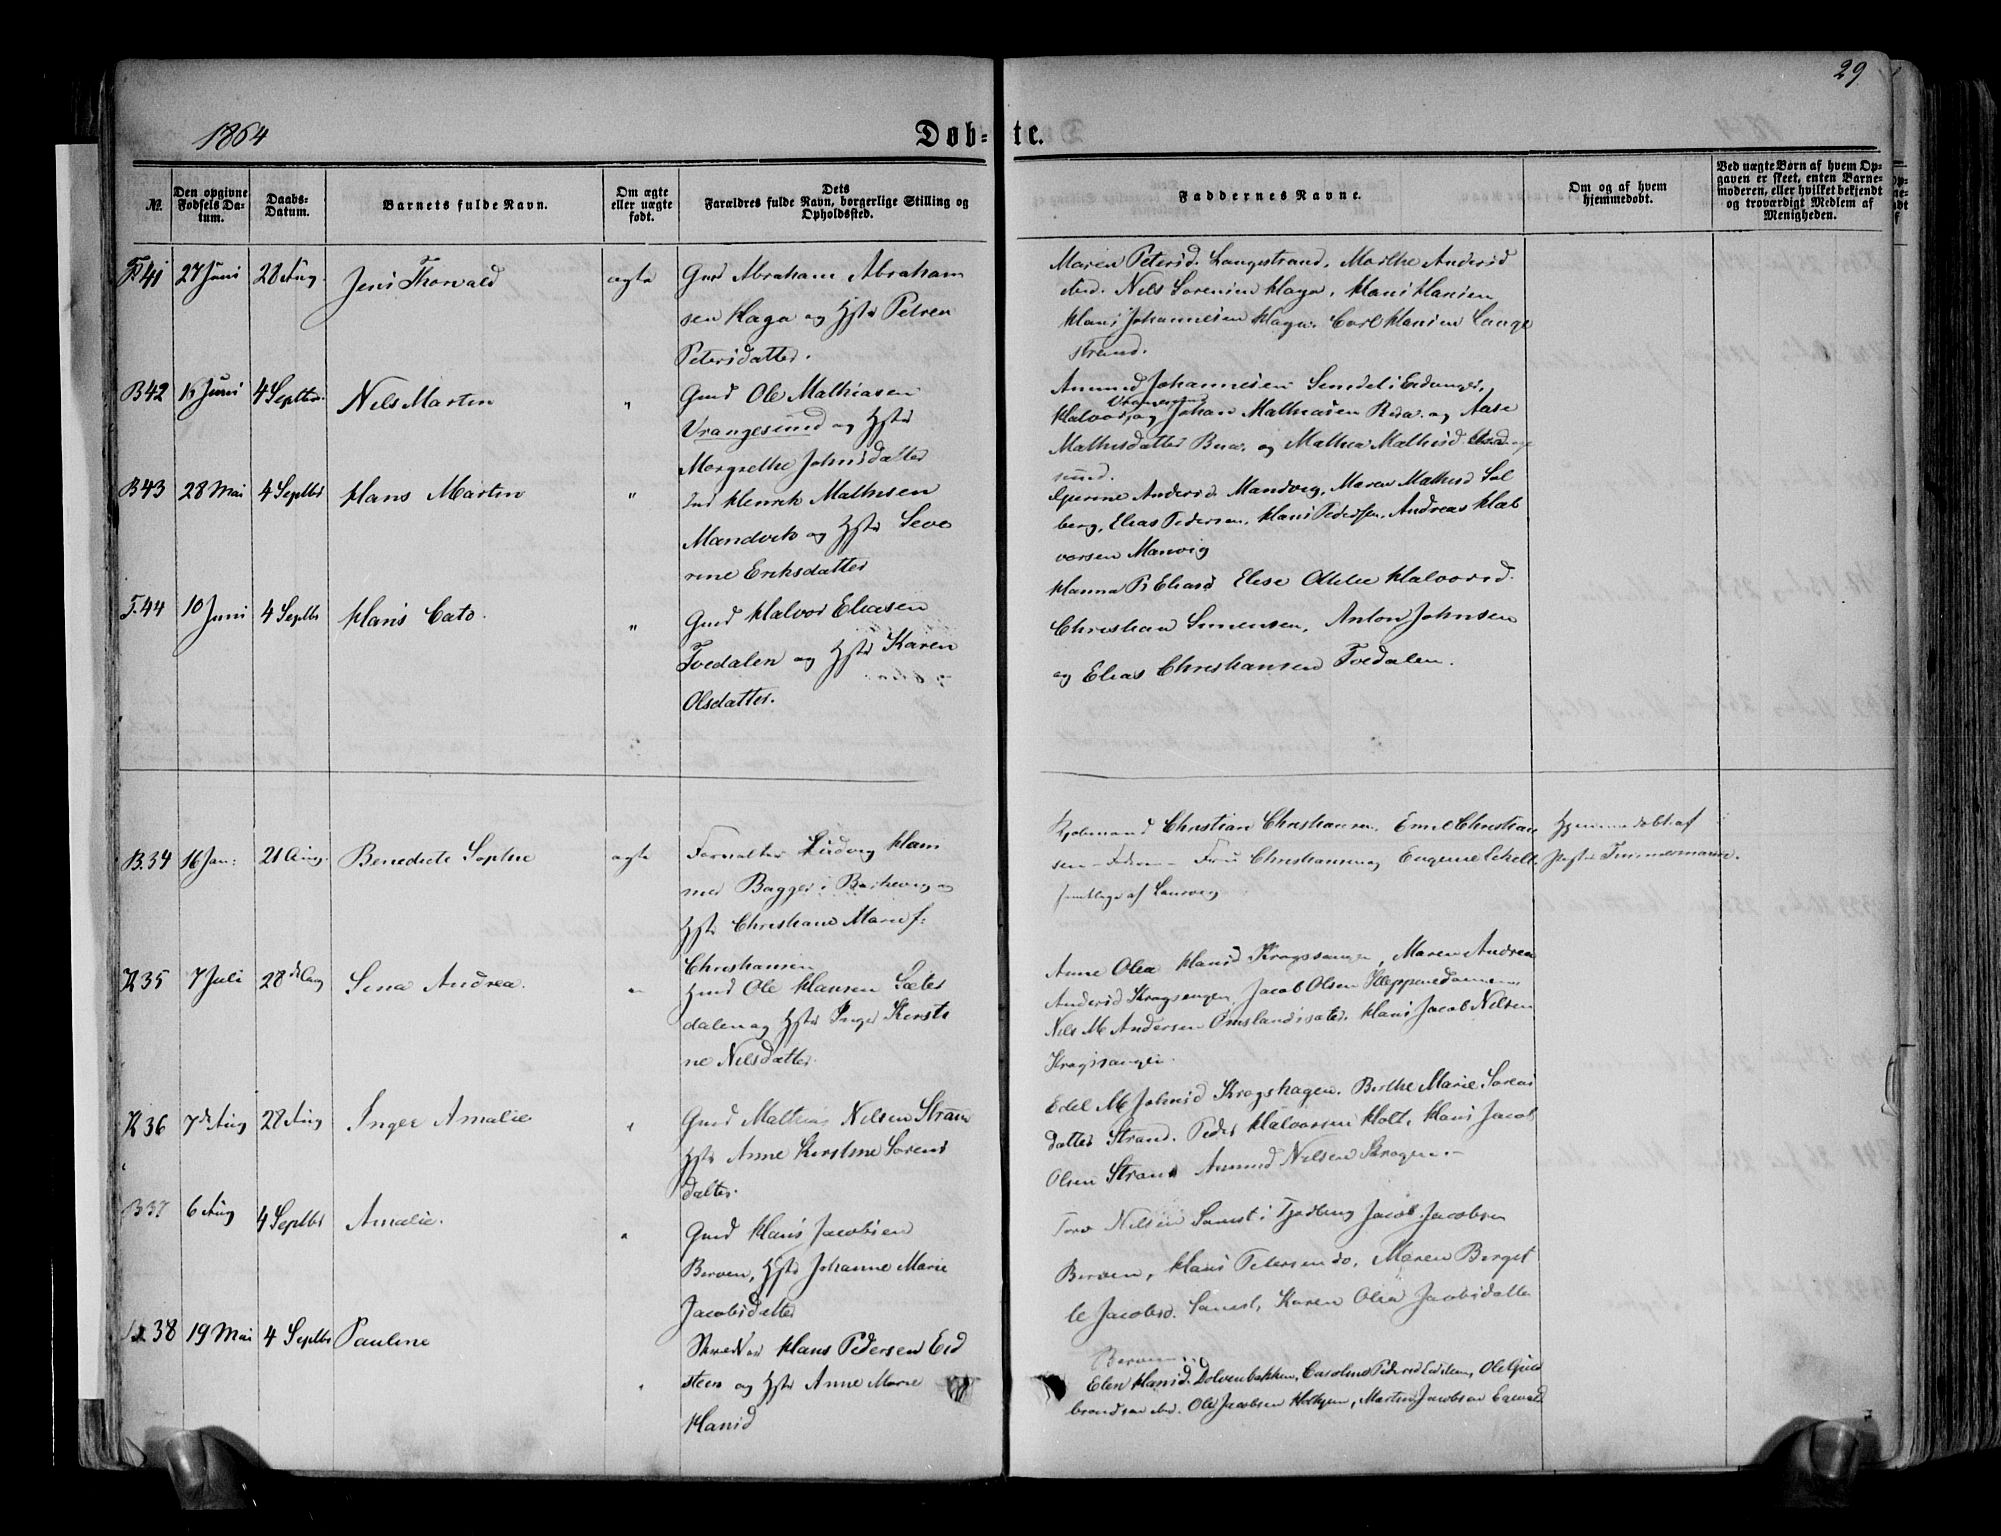 29
1864
Døb-te.
No.
Den opgivne Fødsels Datum.
Daabs-Datum.
Barnets fulde Navn.
Om ægte eller uægte født.
Dets Forældres fulde Navn, borgerlige Stilling og Opholdssted.
Faddernes Navne.
Om og af hvem hjemmedøbt.
Ved uægte Børn af hvem Opgaven er skeet, enten Barnemoderen, eller hvilket bekjendt og troværdigt Medlem af Menigheden.
41 27 Juni 28 Aug. Jens Thorvald ægte Gmd Abraham Abraham
sen Haga og Hstr Petren
Petersdatter.
Maren Petersd. Langestrand, Marthe Andersd
Nils Sørensen Haga, Hans Hansen
Hans Johannesen Haga. Carl Hansen Lange
strand.
B 42 Juni 4 Septbr. Nils Martin " Gmd Ole Mathiasen
Vrangesund og Hstr
Margrethe Johnsdatter
Amund Johannesen i Eidanger,
Halvor og Johan Mathiasen og Aase
Mathisdatter og Mathea Mathisd
sund.
B 43 28 Mai 4 Septbr Hans Martin " Henrik Mathisen
Mandvik og Hstr Seve
rine Eriksdatter
Gurine Andersd. Mandvig, Maren Mathisd Sol
berg, Elias Pedersen, Hans Pedersen, Andreas Hal
vorsen Manvig
T. 44 10 Juni 4 Septbr Hans Cato. " Gmd Halvor Eliasen
Tvedalen og Hstr Karen
Olsdatter.
Hanna B Eliasd Elise Halvorsd.
Christian Simensen, Anton Johnsen
og Elias Christiansen Tvedalen.
B. 34 16 Jan: 21 Aug. Benedicte Sophie ægte Forvalter Ludvig Ham
mer Bagger i Barkevig og
Hstr Christiane Marie f:
Christiansen
Kjøbmand Christian Christiansen, Emil Christian
sen Fru Christiansen og Eugenie
samtlige af Laurvig
Hjemmedøbt af
Pastor Timmermann.
K 35 7 Juli 28 Aug Sina Andrea. " Gmd Ole Hansen Sæter
dalen og Hstr Inger Kirsti
ne Nilsdatter.
Anne Olea Hansd , Maren Andrea
Andersd , Jacob Olsen
Nils M Andersen Omslandsæter. Hans Jacob Nilsen
K 36 7de Aug 28 Aug Inger Amalie " Gmd Mathias Nilsen Strand
Hstr Anne Kirstine Sørens
datter.
Edel M Johnsd Kragshagen. Berthe Marie Sørens
datter Strand. Peder Halvorsen Holt, Hans Jacob
Olsen Strand Amund Nilsen
B 37 6 Aug 4 Septbr Amalie. " Gmd Hans Jacobsen
Berven, Hstr Johanne Marie
Jacobsdatter
Nilsen i Tjødling Jacob Jacobsen
Berven, Hans Petersen do, Maren Berget
te Jacobsd. , Karen Olea Jacobsdatter
Berven
38 19 Mai 4 Septbr Pauline " Hans Pedersen Eid
sten og Hstr Anne Marie
Hansd
Elen Hansd. Dolvenbakken, Caroline Pedersd , Ole Gul
brandsen . Ole Jacobsen , Martin Jacobsen